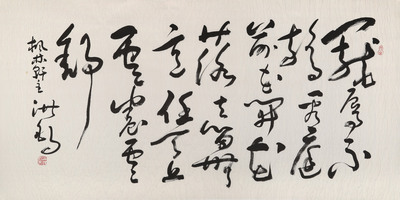 寵辱不
驚看庭
前花開花
落去留無
意任天上
雲卷雲
舒
枫林軒主 洪